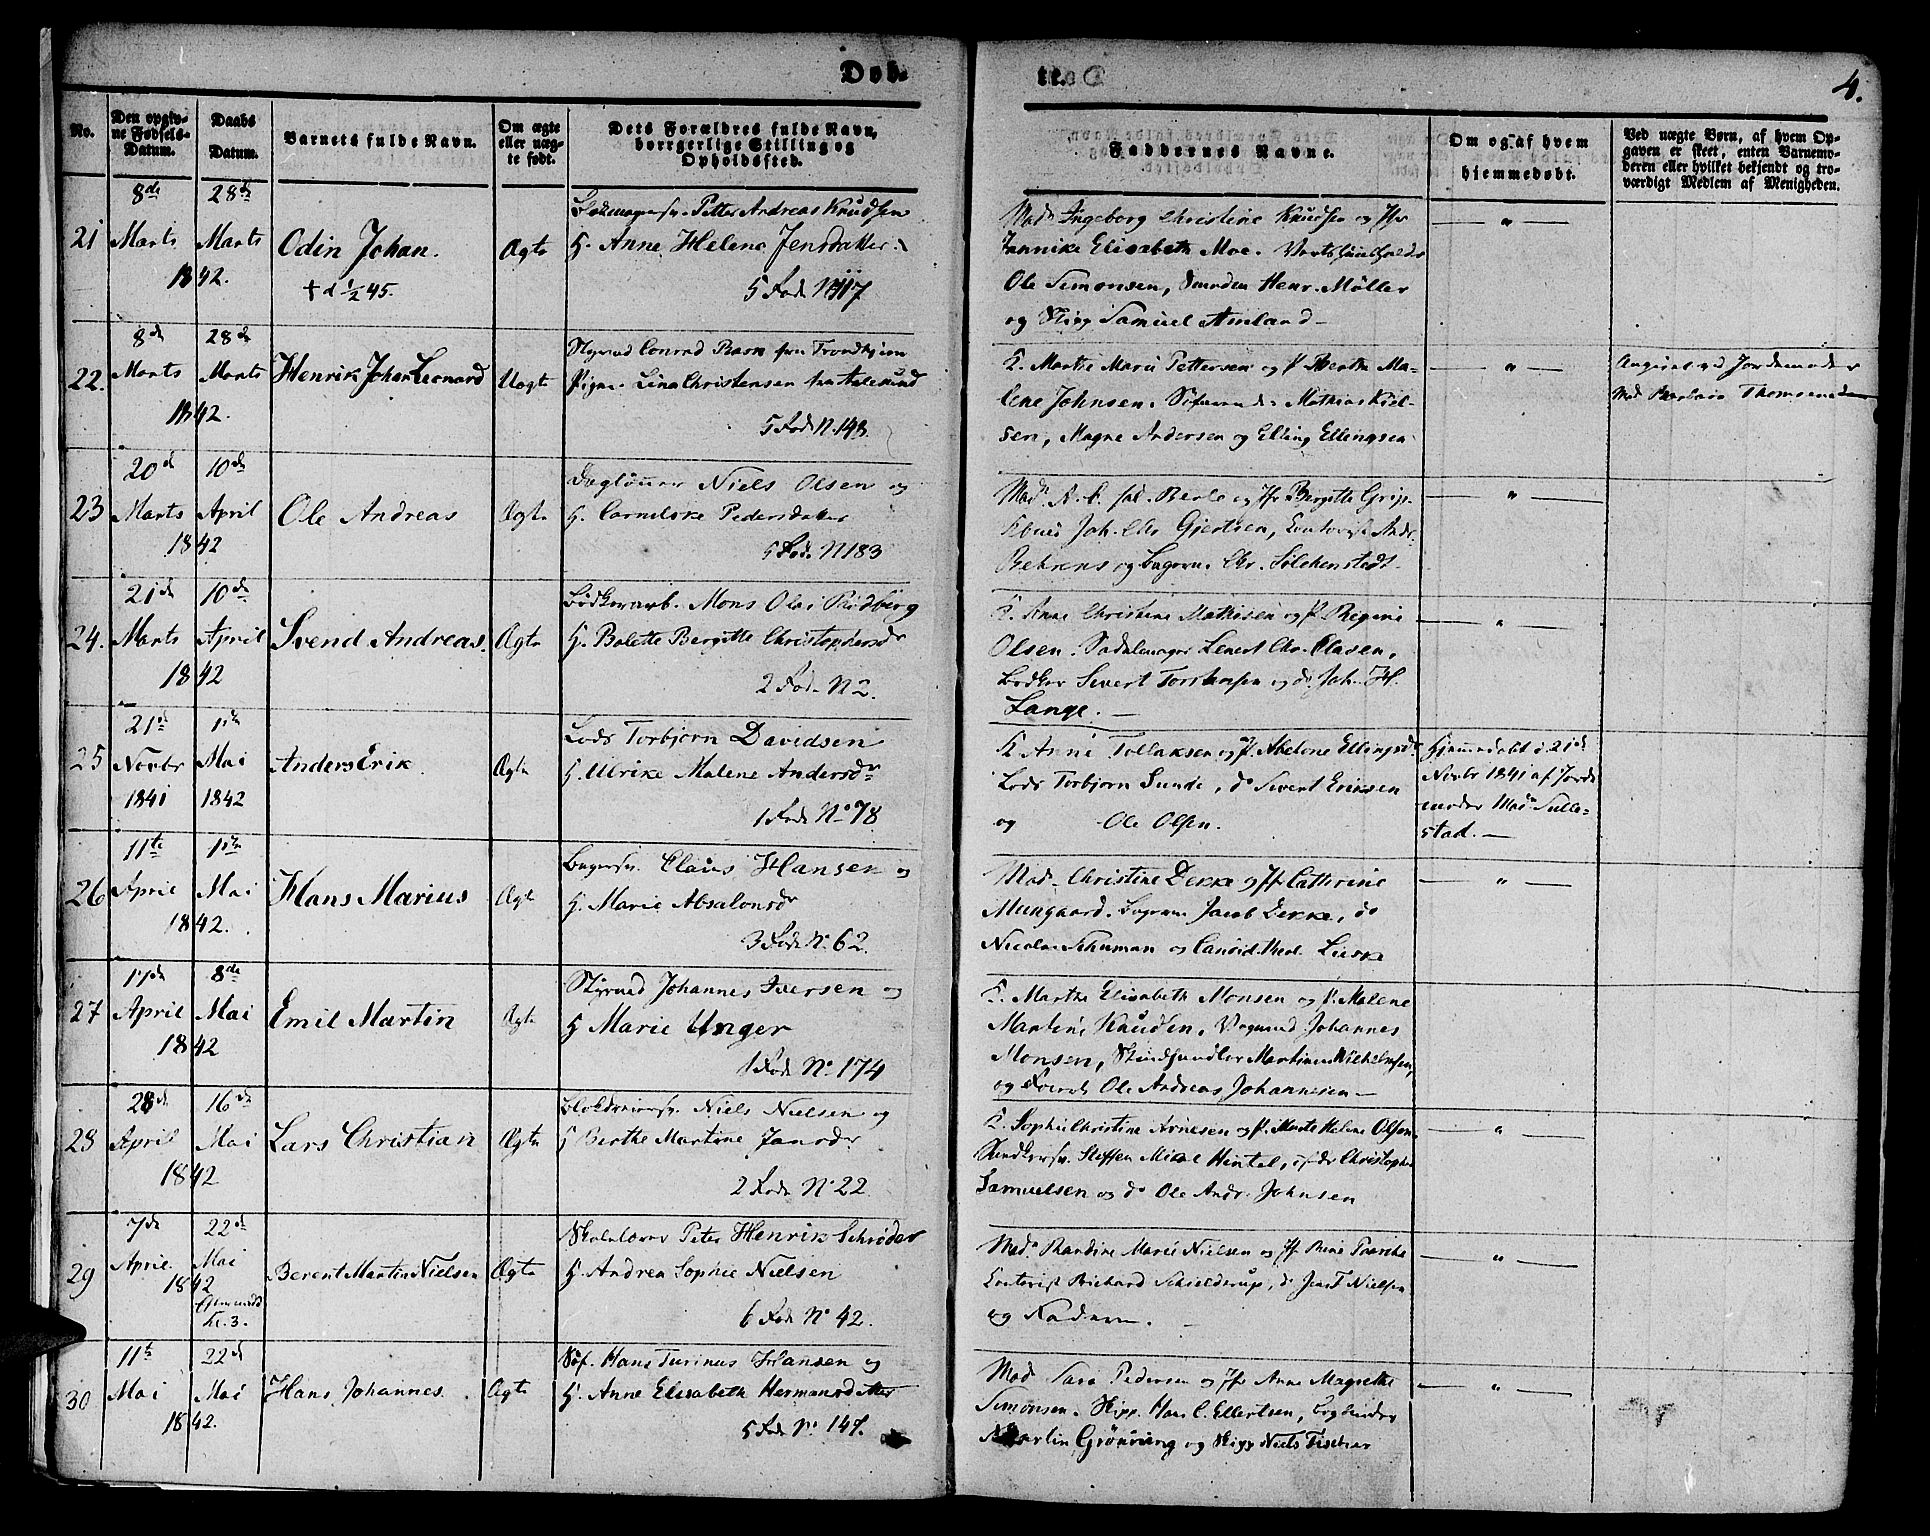 Døb-
te.
4.
No.
Den opgiv-
ne Fødsels-
Datum.
Daabs
Datum.
Barnets fulde Navn.
Om ægte
eller uæg-
te født.
Dets Forældres fulde Navn,
borgerlige Stilling og
Opholdssted.
Faddernes Navne.
Om og af hvem
hjemmedøbt.
Ved uægte Børn, af hvem Op-
gaven er skeet, enten Barnemo-
deren eller hvilket bekjendt og tro-
værdigt Medlem af Menigheden.
21
8de Marts 1842.
28de Marts
Odin Johan.
† d 1/2 45.
Ægte
Petter Andreas Knudsen
H. Anne Helene Jensdatter.
5 Fode N 117
Mad. Ingeborg Christine Knudsen og Jfr
Jannike Elisabeth Moe.
Ole Simonsen, Henr. Møller
og Skipp Samuel Amland
22.
8de Marts 1842.
28de Marts
Henrik Johan Leonard
Uægte
Styrmd Conrad fra Trondhjem
Pigen Lina Christensen fra Aalesund
5 Fode N. 148.
K. Marthe Marie Pettersen og P. Berthe Ma-
lene Johnsen. Mathias Kiel-
sen, Magne Andersen og Elling Ellingsen
Angivet ved Jordemoder
Mad Barbara Thomsen
23
20de Marts 1842
10de April
Ole Andreas
Ægte
Dagløner Niels Olsen og
H. Cornelske Pedersdatter
5 Fode. N 183
Mad. Berle og Jfr Bergitte Grip
Joh. Chr Gjertsen, Contorist Andr.
Behrens og Bagersv. Chr. Sølchenstedt
24.
21de Marts 1842
10de April
Svend Andreas.
Ægte
Bødkerarb. Mons Olai Rødberg
H. Bolette Bergitte Christophersdr
2 Fode N 2.
K. Anne Christine Mathisen og P. Regine
Olsen. Sadelmager Lenert Chr. Clasen,
Bødker Sivert Torstensen og do Joh. H.
Lange.
25
21de Novbr 1841
1ste Mai 1842
Anders Erik
Ægte
Lods Torbjørn Davidsen
H. Ulrike Malene Andersdr
1 Fode No 78
K Anne Tollaksen og P. Abelone Ellingsdr
Lods Torbjørn Sunde, do Sivert Eriksen
og Ole Olsen.
Hjemmedøbt d. 21de
Novbr 1841 af Jorde
moder Mad Sulle-
stad.
26
11te April 1842.
1ste Mai
Hans Marius
Ægte
Bagersv. Claus Hansen og
H. Marie Absalonsdr
3 Fode No 62.
Mad. Christine Dekke og Jfr Cathrine
Mungaard. Jacob Dekke, do
Nicolai Schuman og Candid. theol.
27
17de April 1842
8de Mai
Emil Martin
Ægte
Styrmd Johannes Iversen og
H Marie Unger
1 Fode No 174
K. Marthe Elisabeth Monsen og P. Malene
Martine Knudsen, Johannes
Monsen, Skindhandler Martinus Wilhelmsen,
og Ole Andreas Johannesen
28
28de April 1842
16de Mai
Lars Christian
Ægte
Blokdreiersv. Niels Nielsen og
H Berthe Martine Jansdr
2 Fode No 22
K. Sophie Christine Arnesen og P. Marte Helene Olsen
Steffen Hintel, do Christoph
Samuelsen og do Ole Andr. Johnsen
29
7de April 1842
22de Mai
Eftermidd
kl. 3.
Berent Martin Nielsen
Ægte
Skolelærer Peter Henrik Schrøder
H. Andrea Sophie Nielsen
6 Fode No 42.
Mad. Randine Marie Nielsen og Jfr
Contorist Richard Schielderup, do Jens T Nielsen
og Faderen.
30
11te Mai 1842.
22de Mai
Hans Johannes
Ægte
Søf. Hans Turinus Hansen og
H. Anne Elisabeth Hermansdatter
5 Fode No 147.
Mad Sara Pedersen og Jfr Anne Magrethe
Simonsen. Skipp. Hans C. Ellertsen, Bogbinder
Martin Grønning og Skipp Niels Fischer